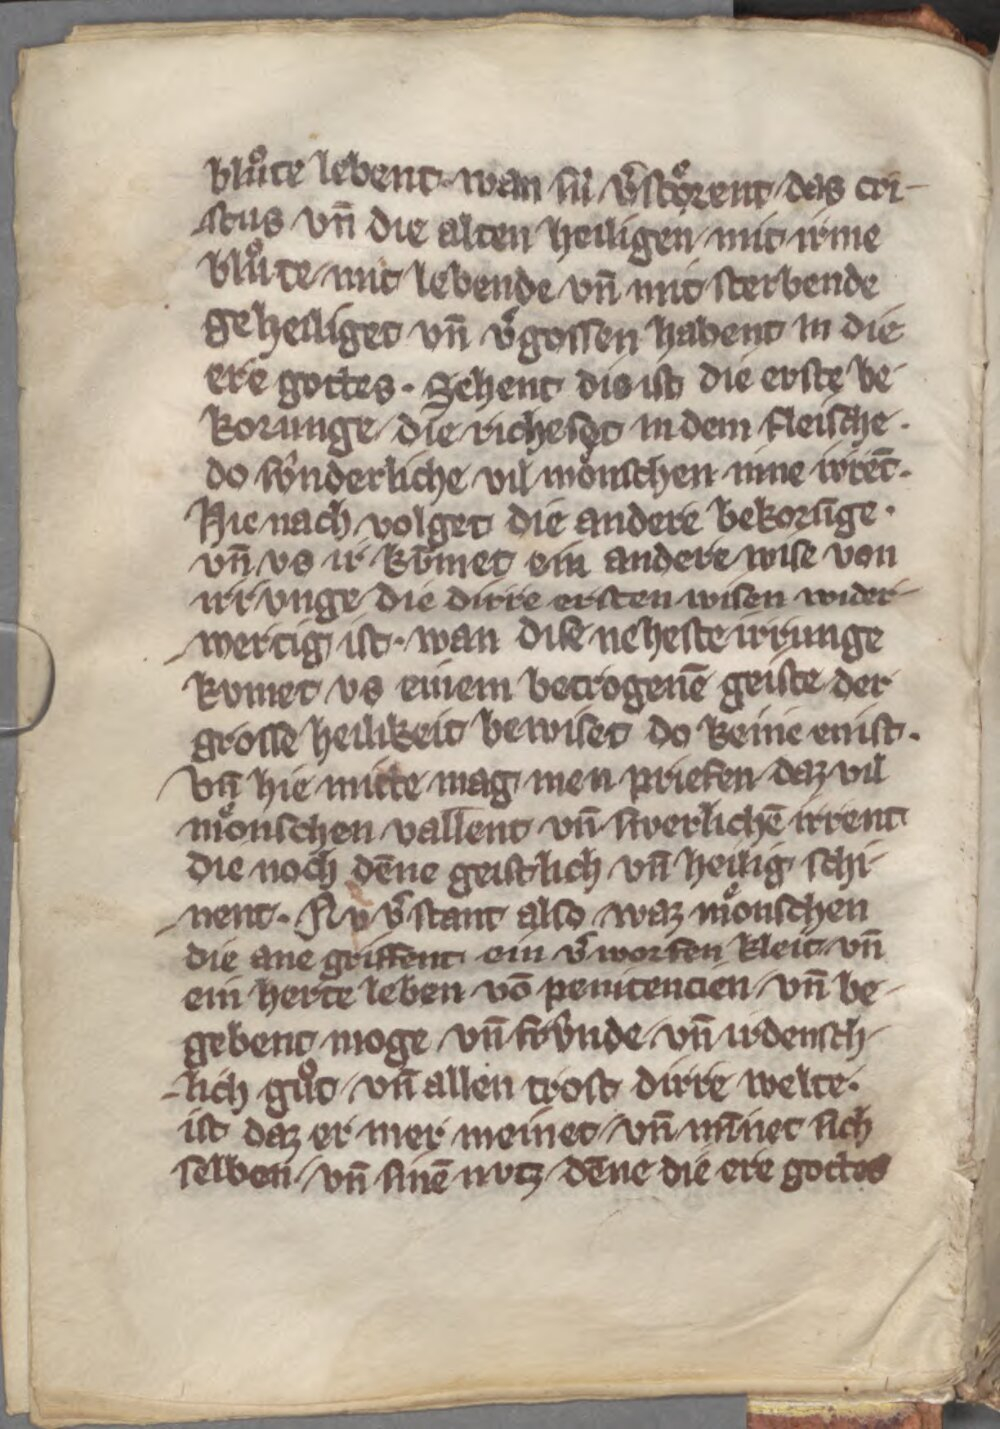 bluͦte lebent· wan sú v̓stoͤrent das cri-
stus vn̄ die alten heiligen mit irme
bluͦte mit lebende vn̄ mit sterbende
geheiliget vn̄ v̓gossen habent in die
ere gottes· Sehent dis ist die erste be-
korunge die richeset in dem fleische·
do wnderliche vil moͤnschen inne irrēt·
Hie nach volget die andere bekorūge·
vn̄ vs ir kvmet ein andere wise von
irrvnge die dirre ersten wisen wider-
wertig ist· wan dise neheste irrunge
kvmet vs einem betrogenē geiste der
grosse heilikeit bewiset do keine enist·
vn̄ hie mitte mag men priefen daz vil
moͤnschen vallent vn̄ swerlichē irrent
die noch dēne geistlich vn̄ heilig schi-
nent· Nv v̓stant also waz moͤnschen
die ane griffent ein v̓worfen kleit vn̄
ein herte leben vō penitencien vn̄ be-
gebent moge vn̄ frv́nde vn̄ irdensch-
lich guͦt vn̄ allen trost dirre welte·
ist daz er mer meinet vn̄ mīnet sich
selben vn̄ sinē nvtz dēne die ere gottes